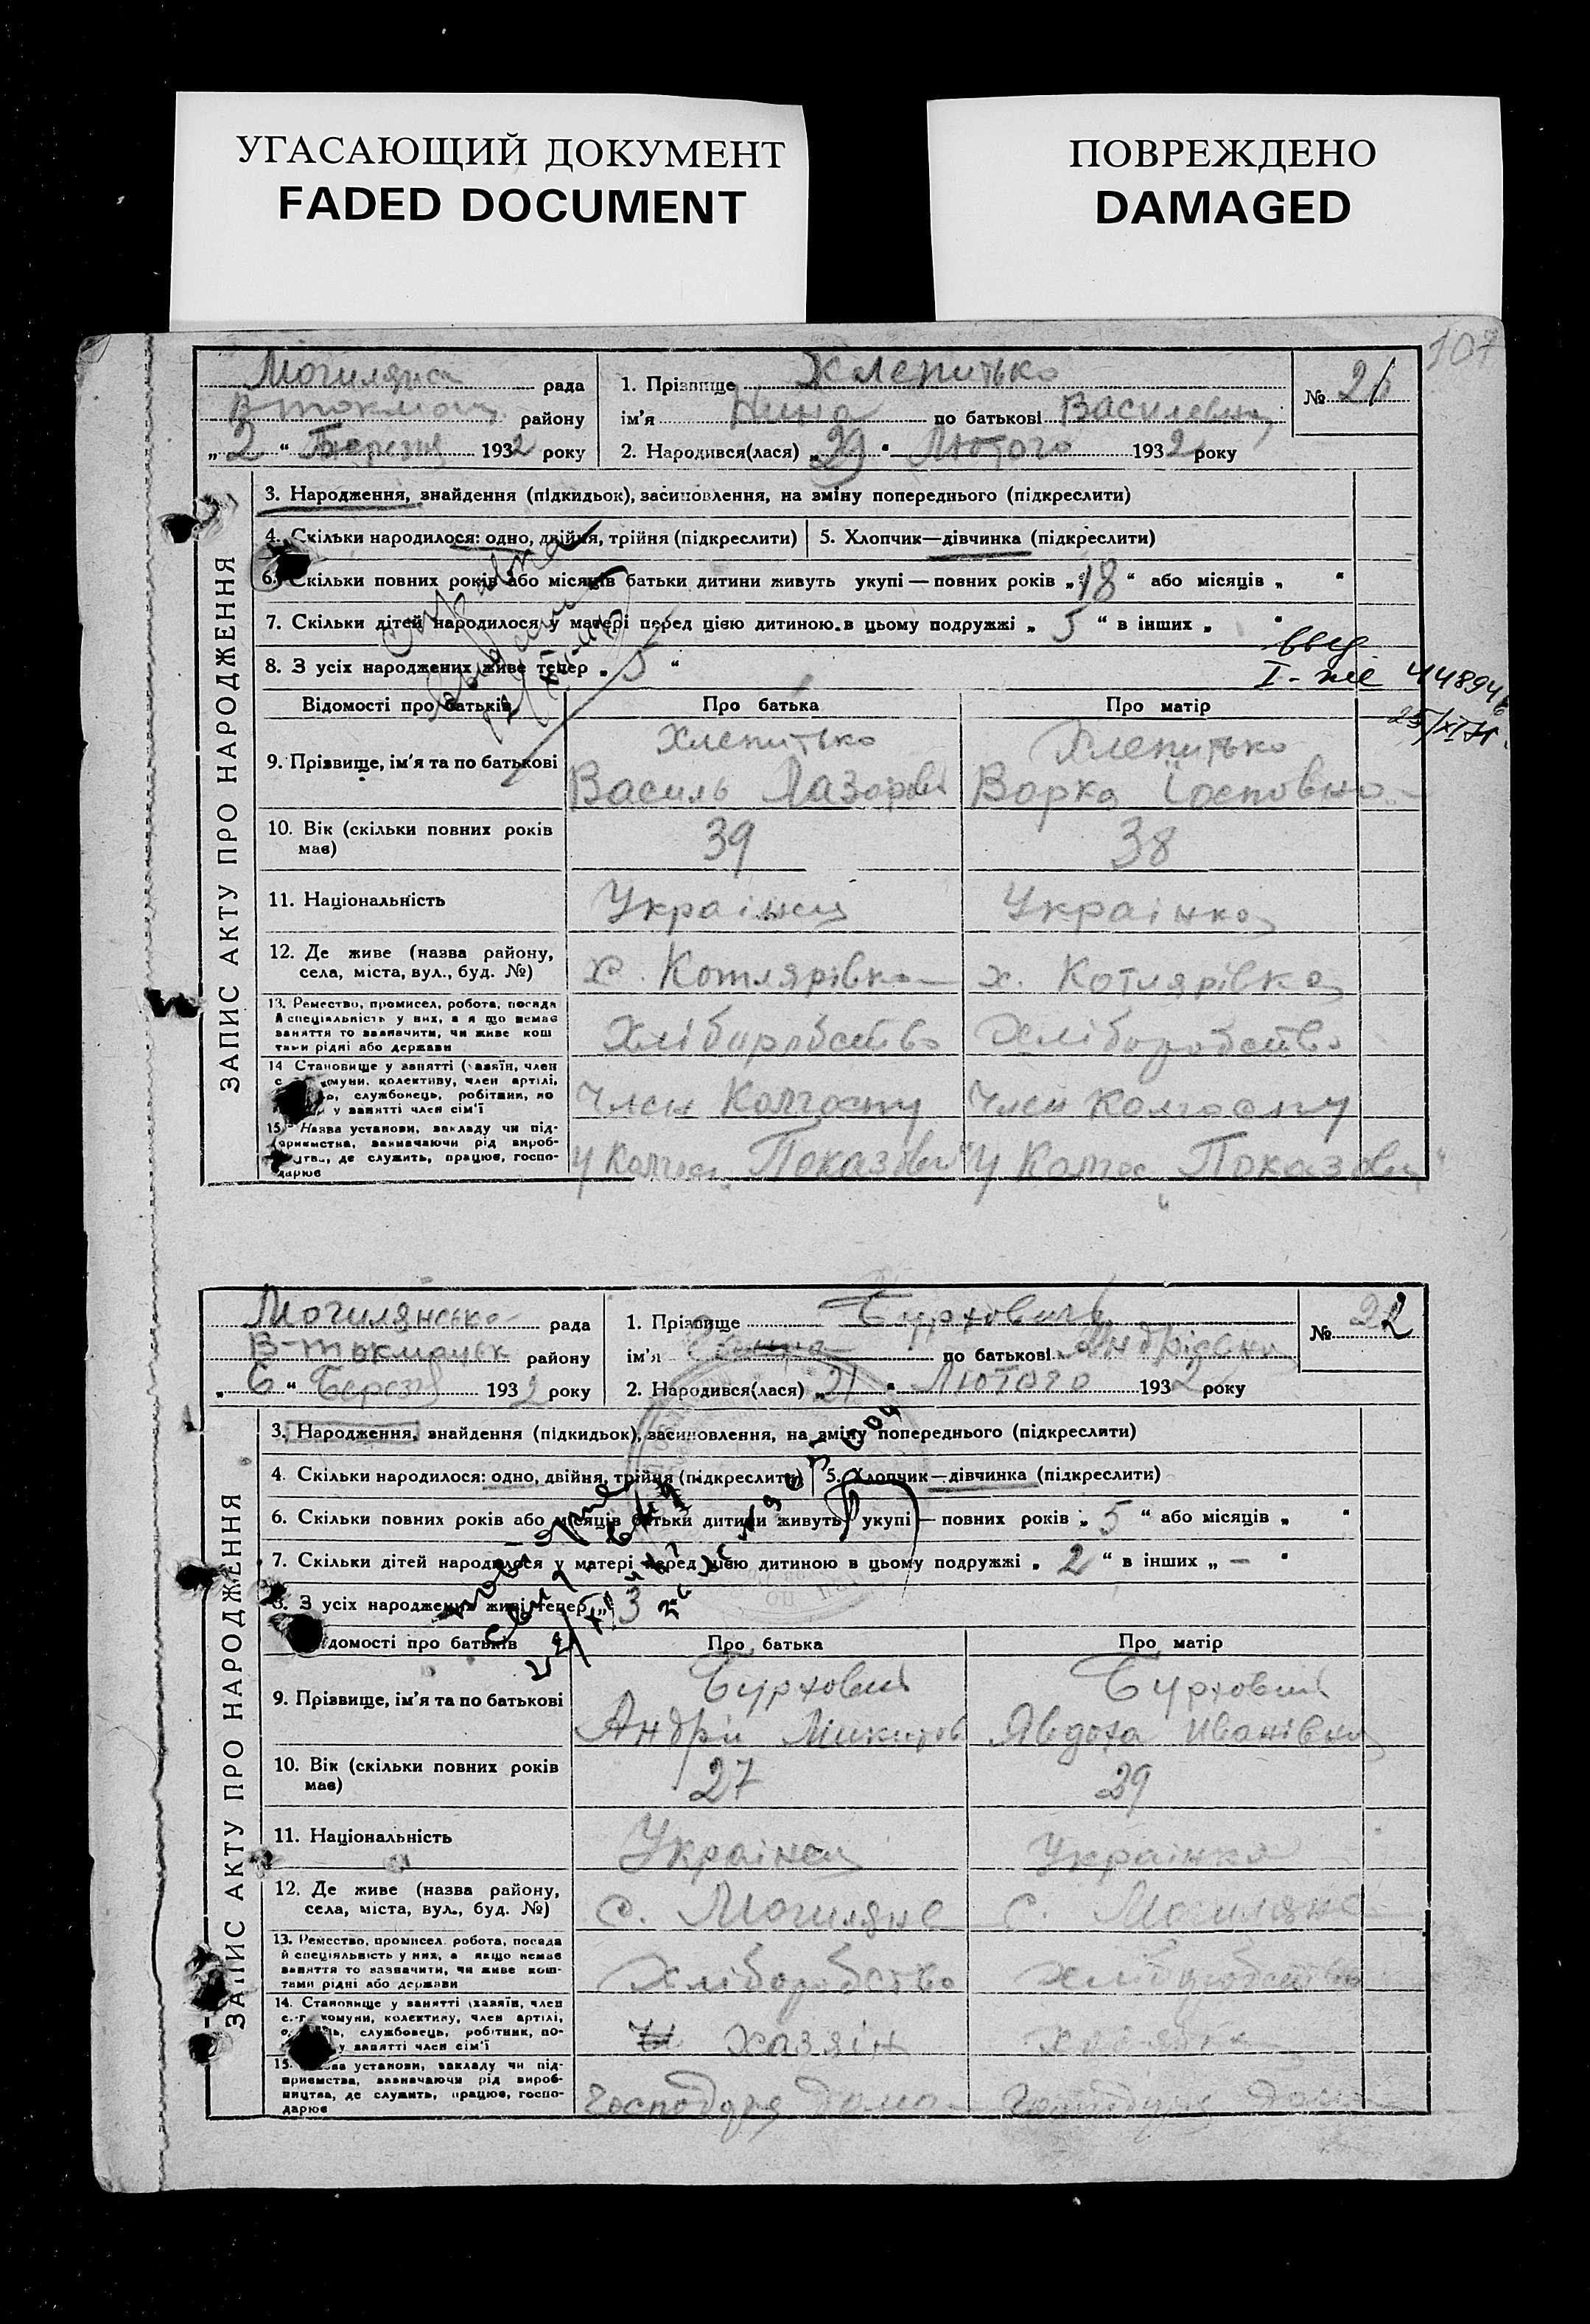 УГАСАЮЩИЙ ДОКУМЕНТ
FADED DOCUMENT
ПОВРЕЖДЕНО
DAMAGED
107
ЗАПИС АКТУ ПРО НАРОДЖЕННЯ
Могилянсь рада
В-токмацьк. району
„ 2 “ Березня 1932 року
1. Прізвище Хлепитько
ім'я Нина по батькові Василевна
2. Народився(лася) „ 29 “ Лютого 1932 року
№ 21
3. Народження, знайдення (підкидьок), засиновлення, на зміну попереднього (підкреслити)
4. Скільки народилося: одно, двійня, трійня (підкреслити)
5. Хлопчик—дівчинка (підкреслити)
6. Скільки повних років або місяців батьки дитини живуть укупі — повних років „ 18 “ або місяців „ “
7. Скільки дітей народилося у матері перед цією дитиною в цьому подружжі „ 5 “ в інших „ “
8. З усіх народжених живе тепер „ 5 “
I-
448946
25/XI 71
Відомості про батьків
Про батька
Про матір
9. Прізвище, ім'я та по батькові
Хлепитько
Василь Лазорови
Хлепитько
Ворка Іосповна
10. Вік (скільки повних років має)
39
38
11. Національність
Українець
Українка
12. Де живе (назва району, села, міста, вул., буд. №)
х. Котлярівка
х. Котлярівка
13. Ремество, промисел, робота, посада й спеціяльність у них, а якщо немає заняття то зазначити, чи живе коштами рідні або держави
Хліборобство
Хліборобство
14. Становище у занятті (хазяїн, член комуни, колективу, член артілі, службовець, робітник, у занятті член сім'ї
Член Колгоспу
Член Колгоспу
15. Назва установи, закладу чи підприємства, зазначаючи рід виробництва, де служить, працює, господарює
У Колгос „Показови“
У Колгос „Показови“
ЗАПИС АКТУ ПРО НАРОДЖЕННЯ
Могилянсько рада
В-токмацьк району
„ 6 “ Берез 1932 року
1. Прізвище Бурховича
ім'я по батькові Андрієвна
2. Народився(лася) „ 21 “ Лютого 1932 року
№ 22
3. Народження, знайдення (підкидьок), засиновлення, на зміну попереднього (підкреслити)
4. Скільки народилося: одно, двійня, трійня (підкреслити)
5. Хлопчик—дівчинка (підкреслити)
6. Скільки повних років або місяців батьки дитини живуть укупі — повних років „ 5 “ або місяців „ “
7. Скільки дітей народилося у матері перед цією дитиною в цьому подружжі „ 2 “ в інших „ — “
8. З усіх народжених живе тепер „ 3 “
Відомості про батьків
Про батька
Про матір
9. Прізвище, ім'я та по батькові
Бурховий
Андрій Микитов
Бурховий
Явдоха Іванівна
10. Вік (скільки повних років має)
27
29
11. Національність
Українець
Українка
12. Де живе (назва району, села, міста, вул., буд. №)
с. Могиляне
с. Могиляне
13. Ремество, промисел, робота, посада й спеціяльність у них, а якщо немає заняття то зазначити, чи живе коштами рідні або держави
Хліборобство
Хліборобство
14. Становище у занятті (хазяїн, член комуни, колективу, член артілі, службовець, робітник, у занятті член сім'ї
хазяїн
15. Назва установи, закладу чи підприємства, зазначаючи рід виробництва, де служить, працює, господарює
Господоря дома